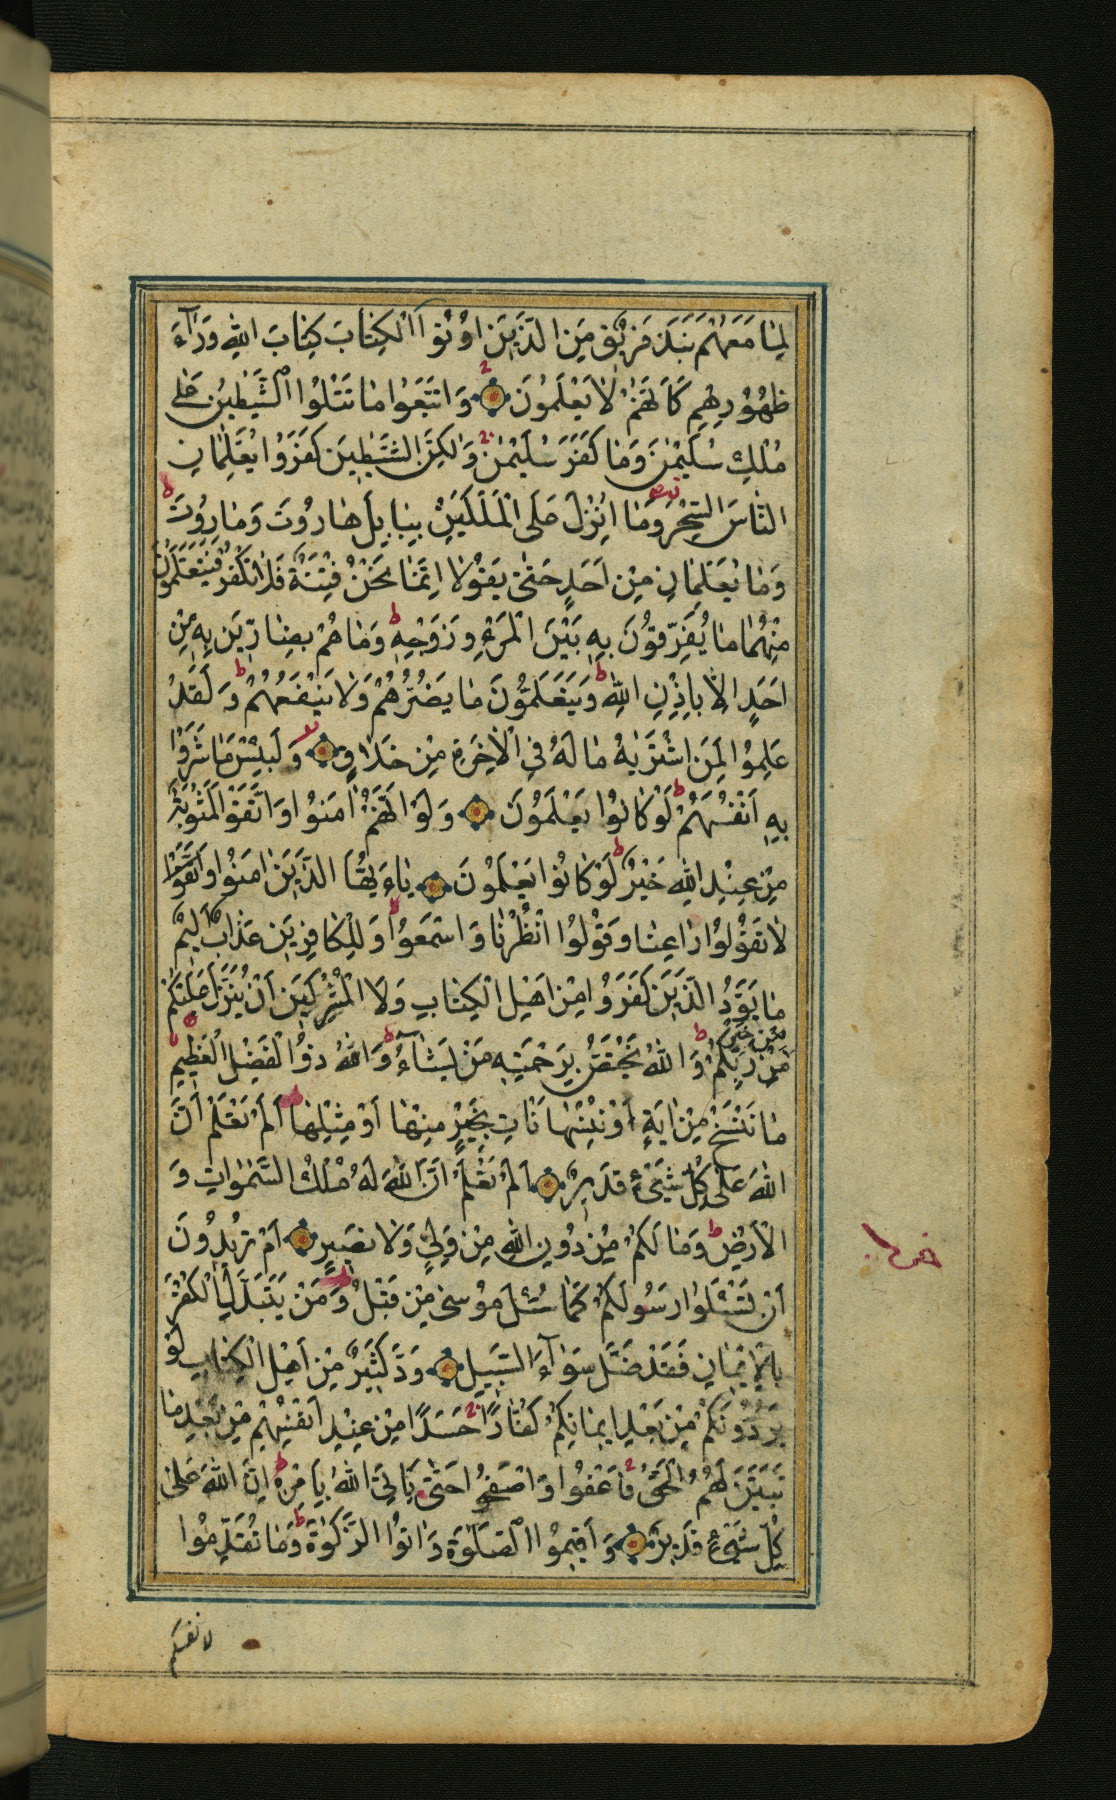 لِمَا مَعَهُمْ نَبَذَ فَرِيقٌ مِنَ الَّذِينَ اُوتُوا الْكِتَابَ كِتَابَ اللهِ وَرَآءَ
ظُهُورِهِمْ كَاَنَّهُمْ لَا يَعْلَمُونَ وَاتَّبَعُوا مَا تَتْلُوا الشَّيٰطِينُ عَلٰى
مُلْكِ سُلَيْمٰنَ وَمَا كَفَرَ سُلَيْمٰنُ وَلٰكِنَّ الشَّيٰطِينَ كَفَرُوا يُعَلِّمَانِ
النَّاسَ السِّحْرَ وَمَا اُنْزِلَ عَلَى الْمَلَكَيْنِ بِبَابِيلَ هَارُوتَ وَمَارُوتَ
وَمَا يُعَلِّمَانِ مِنْ اَحَدٍ حَتّٰى يَقُولَا اِنَّمَا نَحْنُ فِتْنَةٌ فَلَا تَكْفُرْ فَيَتَعَلَّمُونَ
مِنْهُمَا مَا يُفَرِّقُونَ بِهِ بَيْنَ الْمَرْءِ وَزَوْجِهِ وَمَا هُمْ بِضَارِّينَ بِهِ مِنْ
اَحَدٍ اِلَّا بِاِذْنِ اللهِ وَيَتَعَلَّمُونَ مَا يَضُرُّهُمْ وَلَا يَنْفَعُهُمْ وَلَقَدْ
عَلِمُوا لَمَنِ اشْتَرٰيهُ مَا لَهُ فِي الْاٰخِرَةِ مِنْ خَلَاقٍ وَلَبِئْسَ مَا شَرَوْا
بِهِ اَنْفُسَهُمْ لَوْ كَانُوا يَعْلَمُونَ وَلَوْ اَنَّهُمْ اٰمَنُوا وَاتَّقَوْا لَمَثُوبَةٌ
مِنْ عِنْدِ اللهِ خَيْرٌ لَوْ كَانُوا يَعْلَمُونَ يَاءَيُّهَا الَّذِينَ اٰمَنُوا
لَا تَقُولُوا رَاعِنَا وَقُولُوا انْظُرْنَا وَاسْمَعُوا وَلِلْكَافِرِينَ عَذَابٌ اَلِيمٌ
مَا يَوَدُّ الَّذِينَ كَفَرُوا مِنْ اَهْلِ الْكِتَابِ وَلَا الْمُشْرِكِينَ اَنْ يُنَزَّلَ عَلَيْكُمْ
مِنْ خَيْرٍ
مِنْ رَبِّكُمْ وَاللهُ يَخْتَصُّ بِرَحْمَتِهِ مَنْ يَشَآءُ وَاللهُ ذُو الْفَضْلِ الْعَظِيمِ
مَا نَنْسَخْ مِنْ اٰيَةٍ اَوْ نُنْسِهَا نَاْتِ بِخَيْرٍ مِنْهَا اَوْ مِثْلِهَا اَلَمْ تَعْلَمْ اَنَّ
اللهَ عَلٰى كُلِّ شَيْءٍ قَدِيرٌ اَلَمْ تَعْلَمْ اَنَّ اللهَ لَهُ مُلْكُ السَّمٰوَاتِ وَ
الْاَرْضِ وَمَا لَكُمْ مِنْ دُونِ اللهِ مِنْ وَلِيٍّ وَلَا نَصِيرٍ اَمْ تُرِيدُونَ
اَنْ تَسْئَلُوا رَسُولَكُمْ كَمَا سُئِلَ مُوسٰى مِنْ قَبْلُ وَمَنْ يَتَبَدَّلِ الْكُفْرَ
بِالْاِيمَانِ فَقَدْ ضَلَّ سَوَآءَ السَّبِيلِ وَدَّ كَثِيرٌ مِنْ اَهْلِ الْكِتَابِ لَوْ
يَرُدُّونَكُمْ مِنْ بَعْدِ اِيمَانِكُمْ كُفَّارًا حَسَدًا مِنْ عِنْدِ اَنْفُسِهِمْ مِنْ بَعْدِ مَا
تَبَيَّنَ لَهُمُ الْحَقُّ فَاعْفُوا وَاصْفَحُوا حَتّٰى يَاْتِيَ اللهُ بِاَمْرِهِ اِنَّ اللهَ عَلٰى
كُلِّ شَيْءٍ قَدِيرٌ وَاَقِيمُوا الصَّلٰوةَ وَاٰتُوا الزَّكٰوةَ وَمَا تُقَدِّمُوا
لانفسكم